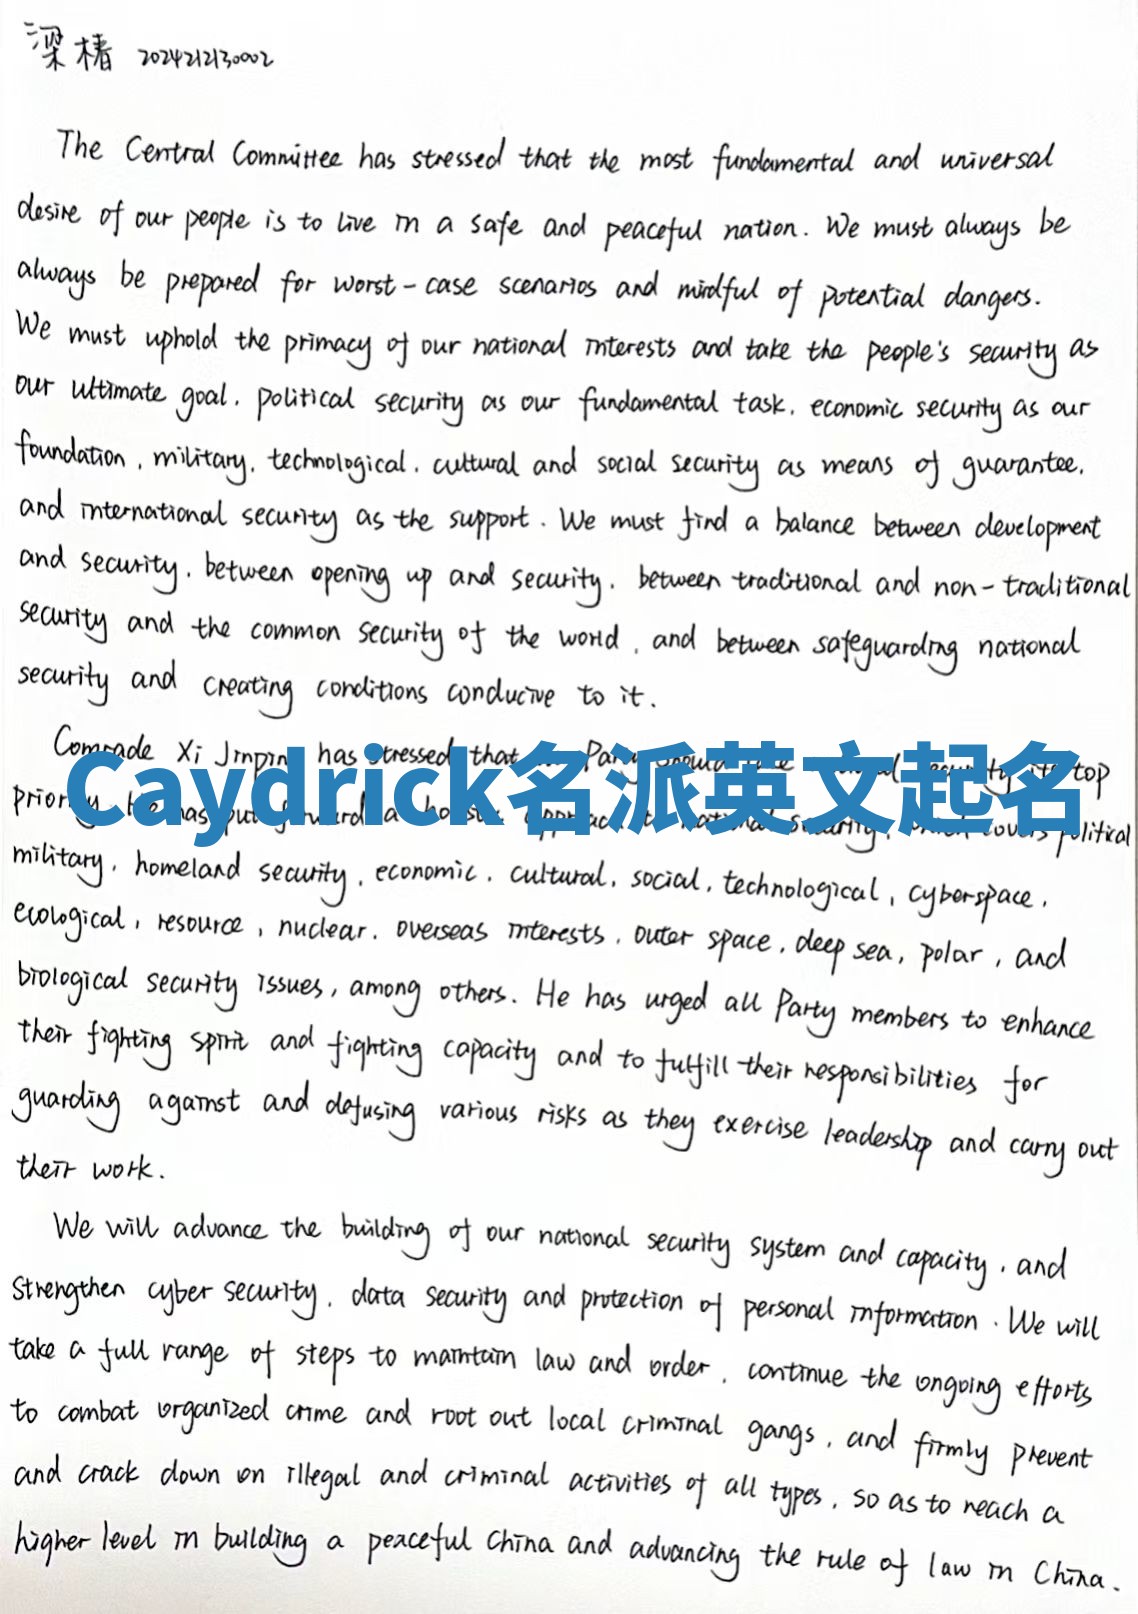 梁椿 2024212130002
The Central Committee has stressed that the most fundamental and universal
desire of our people is to live in a safe and peaceful nation. We must always be
always be prepared for worst-case scenarios and mindful of potential dangers.
We must uphold the primacy of our national interests and take the people's security as
our ultimate goal, political security as our fundamental task, economic security as our
foundation, military, technological, cultural and social security as means of guarantee,
and international security as the support. We must find a balance between development
and security, between opening up and security, between traditional and non-traditional
security and the common security of the world, and between safeguarding national
security and creating conditions conducive to it.
Comrade Xi Jinping has stressed that Party should security its top
Caydrick名派英文起名
priority. He has put forward a holistic approach to national security, which covers political
military, homeland security, economic, cultural, social, technological, cyberspace,
ecological, resource, nuclear, overseas interests, outer space, deep sea, polar, and
biological security issues, among others. He has urged all Party members to enhance
their fighting spirit and fighting capacity and to fulfill their responsibilities for
guarding against and defusing various risks as they exercise leadership and carry out
their work.
We will advance the building of our national security system and capacity, and
strengthen cyber security, data security and protection of personal information. We will
take a full range of steps to maintain law and order, continue the ongoing efforts
to combat organized crime and root out local criminal gangs, and firmly prevent
and crack down on illegal and criminal activities of all types, so as to reach a
higher level in building a peaceful China and advancing the rule of law in China.